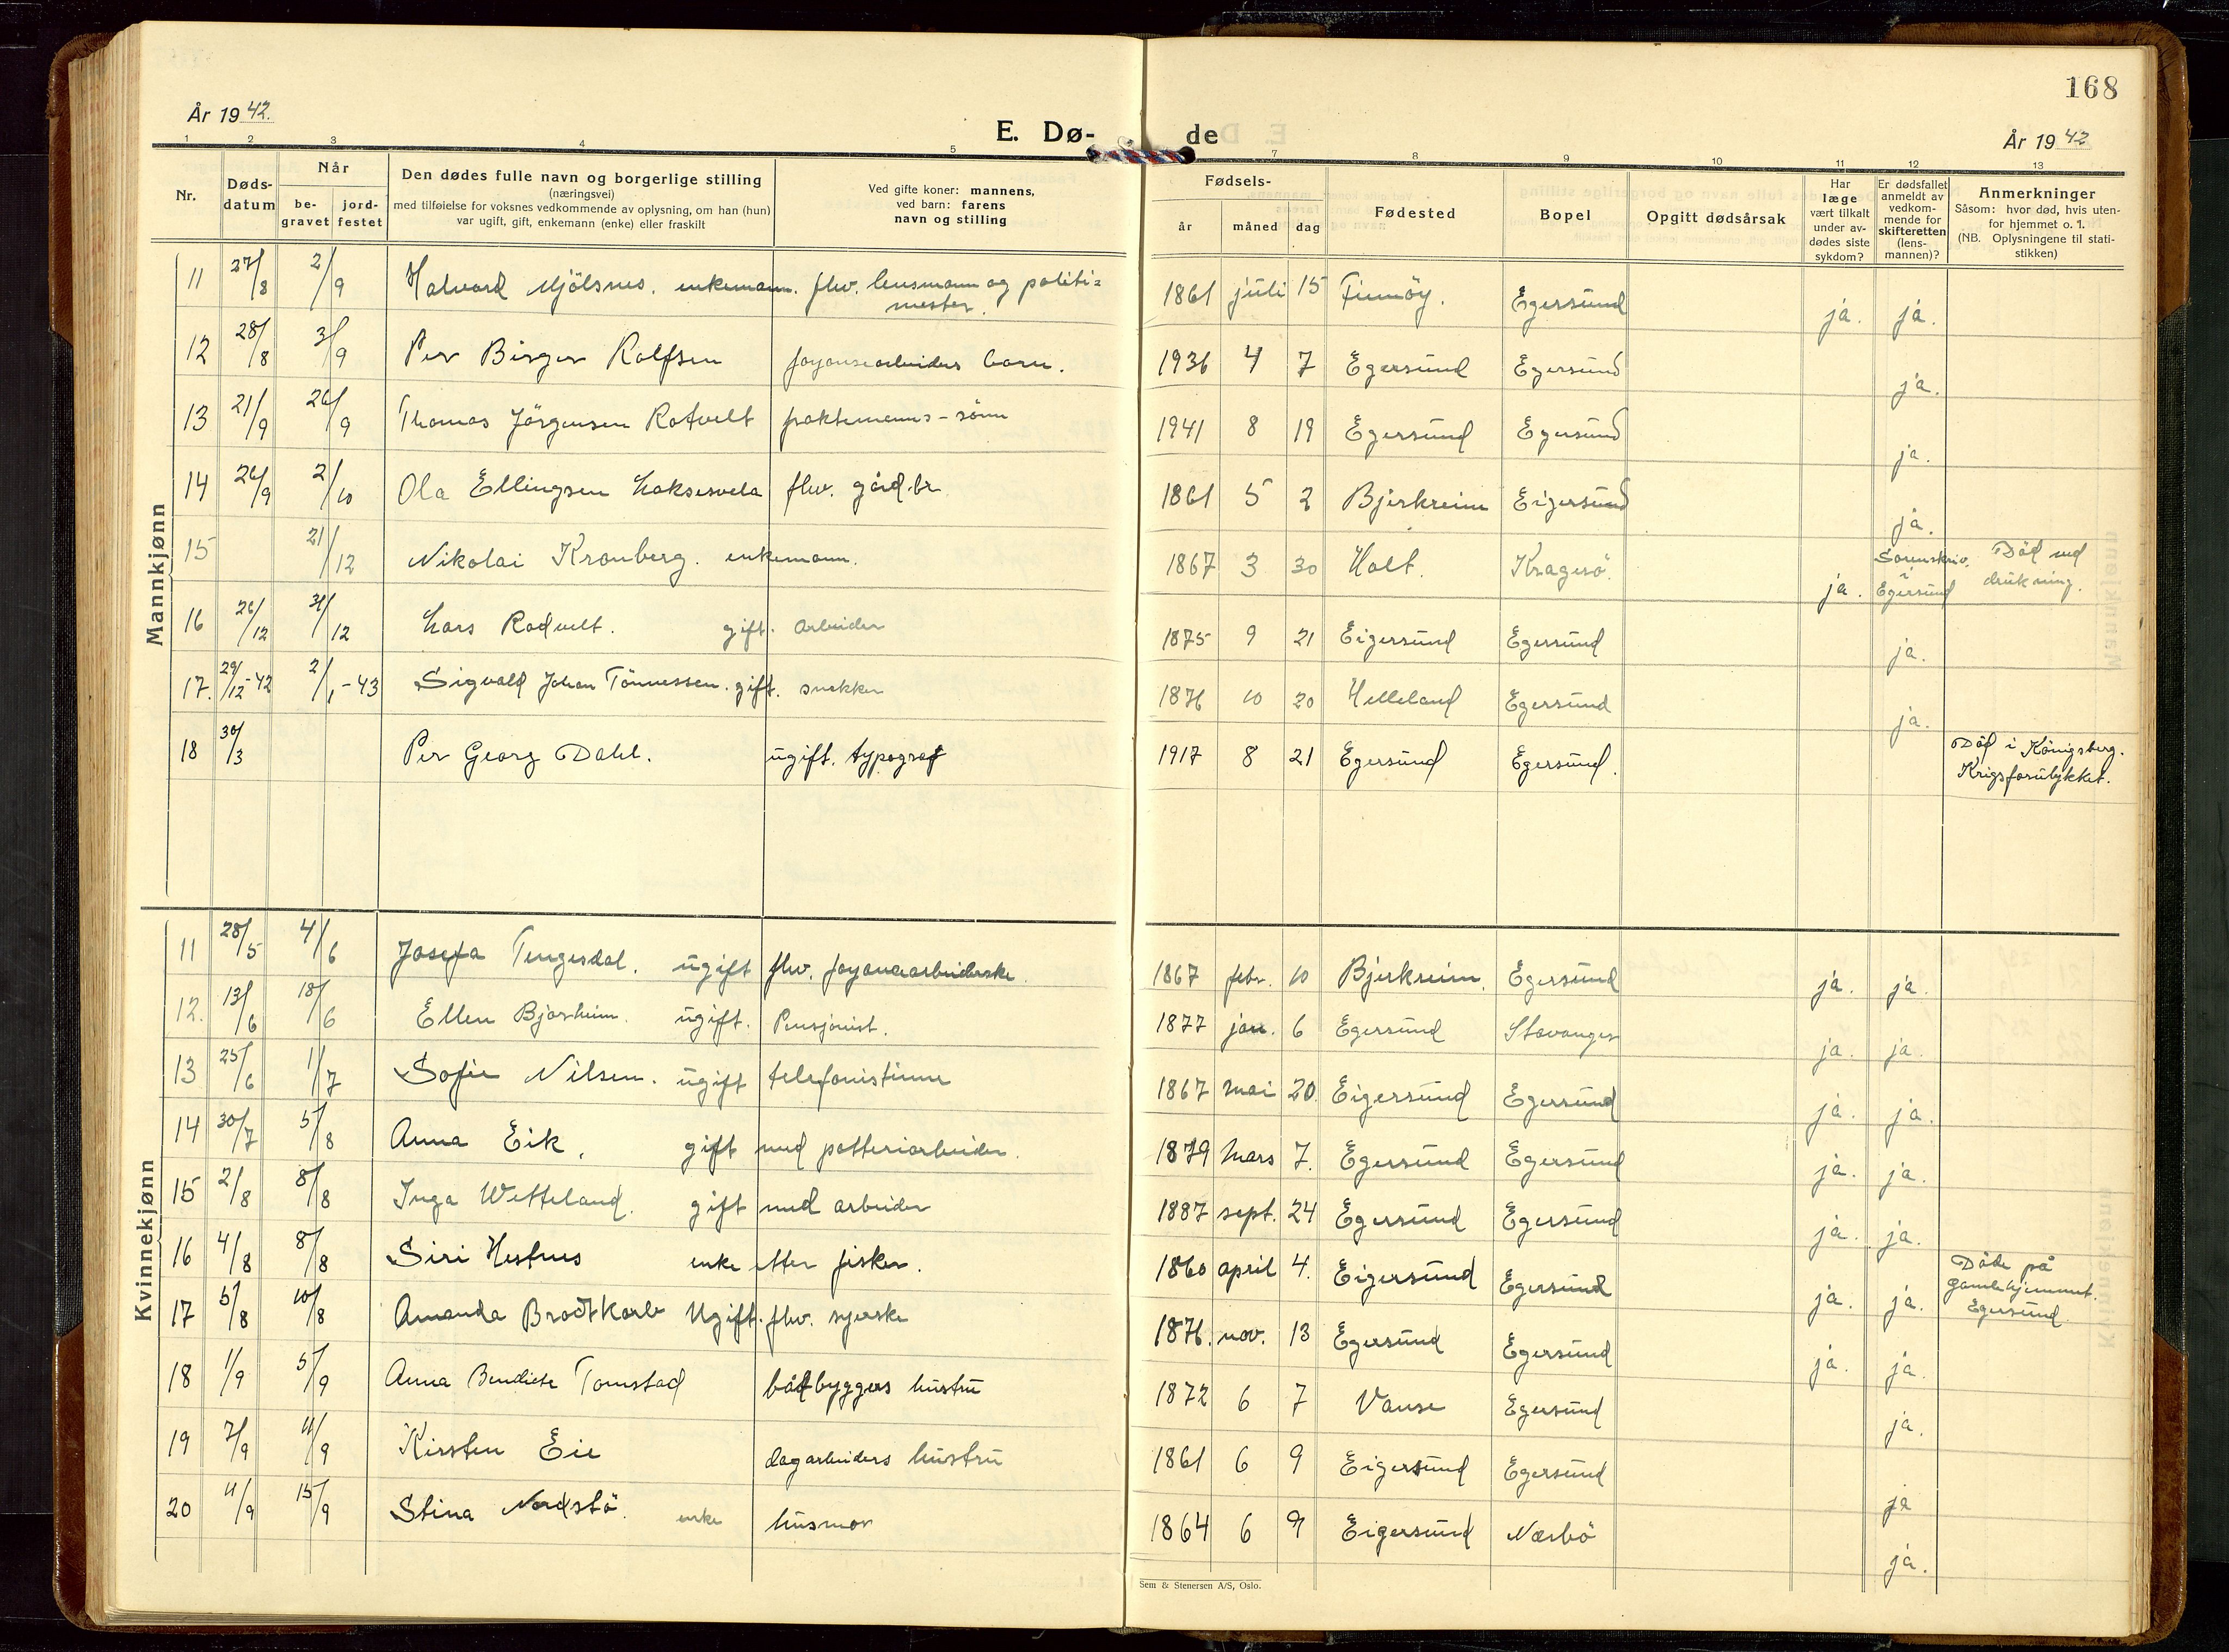 168
År 1942.
E. Dø-
de
År 1942
1 2 3 4 5
7 8 9 10 11 12 13
Nr.
Døds-
datum
Når
be-
gravet
jord-
festet
Den dødes fulle navn og borgerlige stilling
(næringsvei)
med tilføielse for voksnes vedkommende av oplysning, om han (hun)
var ugift, gift, enkemann (enke) eller fraskilt
Ved gifte koner: mannens,
ved barn: farens
navn og stilling
Fødsels-
år måned dag
Fødested
Bopel
Opgitt dødsårsak
Har
læge
vært tilkalt
under av-
dødes siste
sykdom?
Er dødsfallet
anmeldt av
vedkom-
mende for
skifteretten
(lens-
mannen)?
Anmerkninger
Såsom: hvor død, hvis uten-
for hjemmet o. l.
(NB. Oplysningene til stati-
stikken)
Mannkjønn
11 27/8 2/9 Halvard Mjölsnes. enkemann. fhv. lensmann og politi=
mester. 1861 juli 15 Finnöy. Egersund ja. ja.
12 28/8 3/9 Per Birger Rolfsen fayansearbeiders barn. 1936 4 7 Egersund Egersund ja.
13 21/9 26/9 Thomas Jörgensen Rotvelt 1941 8 19 Egersund Egersund ja.
14 26/9 2/10 Ola Ellingsen Laksesvela fhv. gård.br 1861 5 2 Bjerkreim Eigersund ja.
15 21/12 Nikolai Kronberg. enkemann. 1867 3 30 Holt. Kragerö. ja. Sorenskriv.
i
Egersund
Död ved
drukning.
16 26/12 31/12 Lars Rodvelt. gift. arbeider 1875 9 21 Eigersund Egersund ja.
17. 29/12-42 2/1-43 Sigvald Johan Tönnessen. gift. snekker 1876 10 20 Helleland Egersund ja.
18 30/3 Per Georg Dahl. ugift. typograf 1917 8 21 Egersund Egersund.
Död i Königsberg.
Krigsforulykket.
Kvinnekjønn
11 28/5 4/6 Josefa Tengesdal. ugift fhv. fayansearbeiderske. 1867 febr. 10 Bjerkreim. Egersund ja. ja.
12. 13/6 18/6 Ellen Bjorheim. ugift. Pensjonist. 1877 jan. 6 Egersund Stavanger ja. ja.
13 25/6 1/7 Sofie Nilsen. ugift telefonistinne 1867 mai 20. Eigersund Egersund ja. ja.
14 30/7 5/8 Anna Eik. gift med potteriarbeider. 1879 mars 7. Egersund Egersund ja. ja.
15 2/8 8/8 Inga Wetteland. gift med arbeider 1887 sept. 24 Egersund Egersund ja. ja.
16 4/8 8/8 Siri Hestnes enke etter fisker. 1860 april 4. Eigersund Egersund ja. ja.
Döde på
gamlehjemmet.
Egersund.
17 5/8 10/8 Amanda Brodtkorb Ugift. fhv. syerske 1876. nov. 13 Egersund Egersund ja. ja.
18 1/9 5/9 Anna Bendicte Tomstad båtbyggers hustru 1872 6 7 Vanse Egersund ja.
19 7/9 11/9 Kirsten Eie dagarbeiders hustru 1861 6 9 Eigersund Egersund ja
20 11/9 15/9 Stina Nordstö. enke husmor 1864 6 9 Eigersund Nærbö ja.
Sem & Stenersen A/S, Oslo.